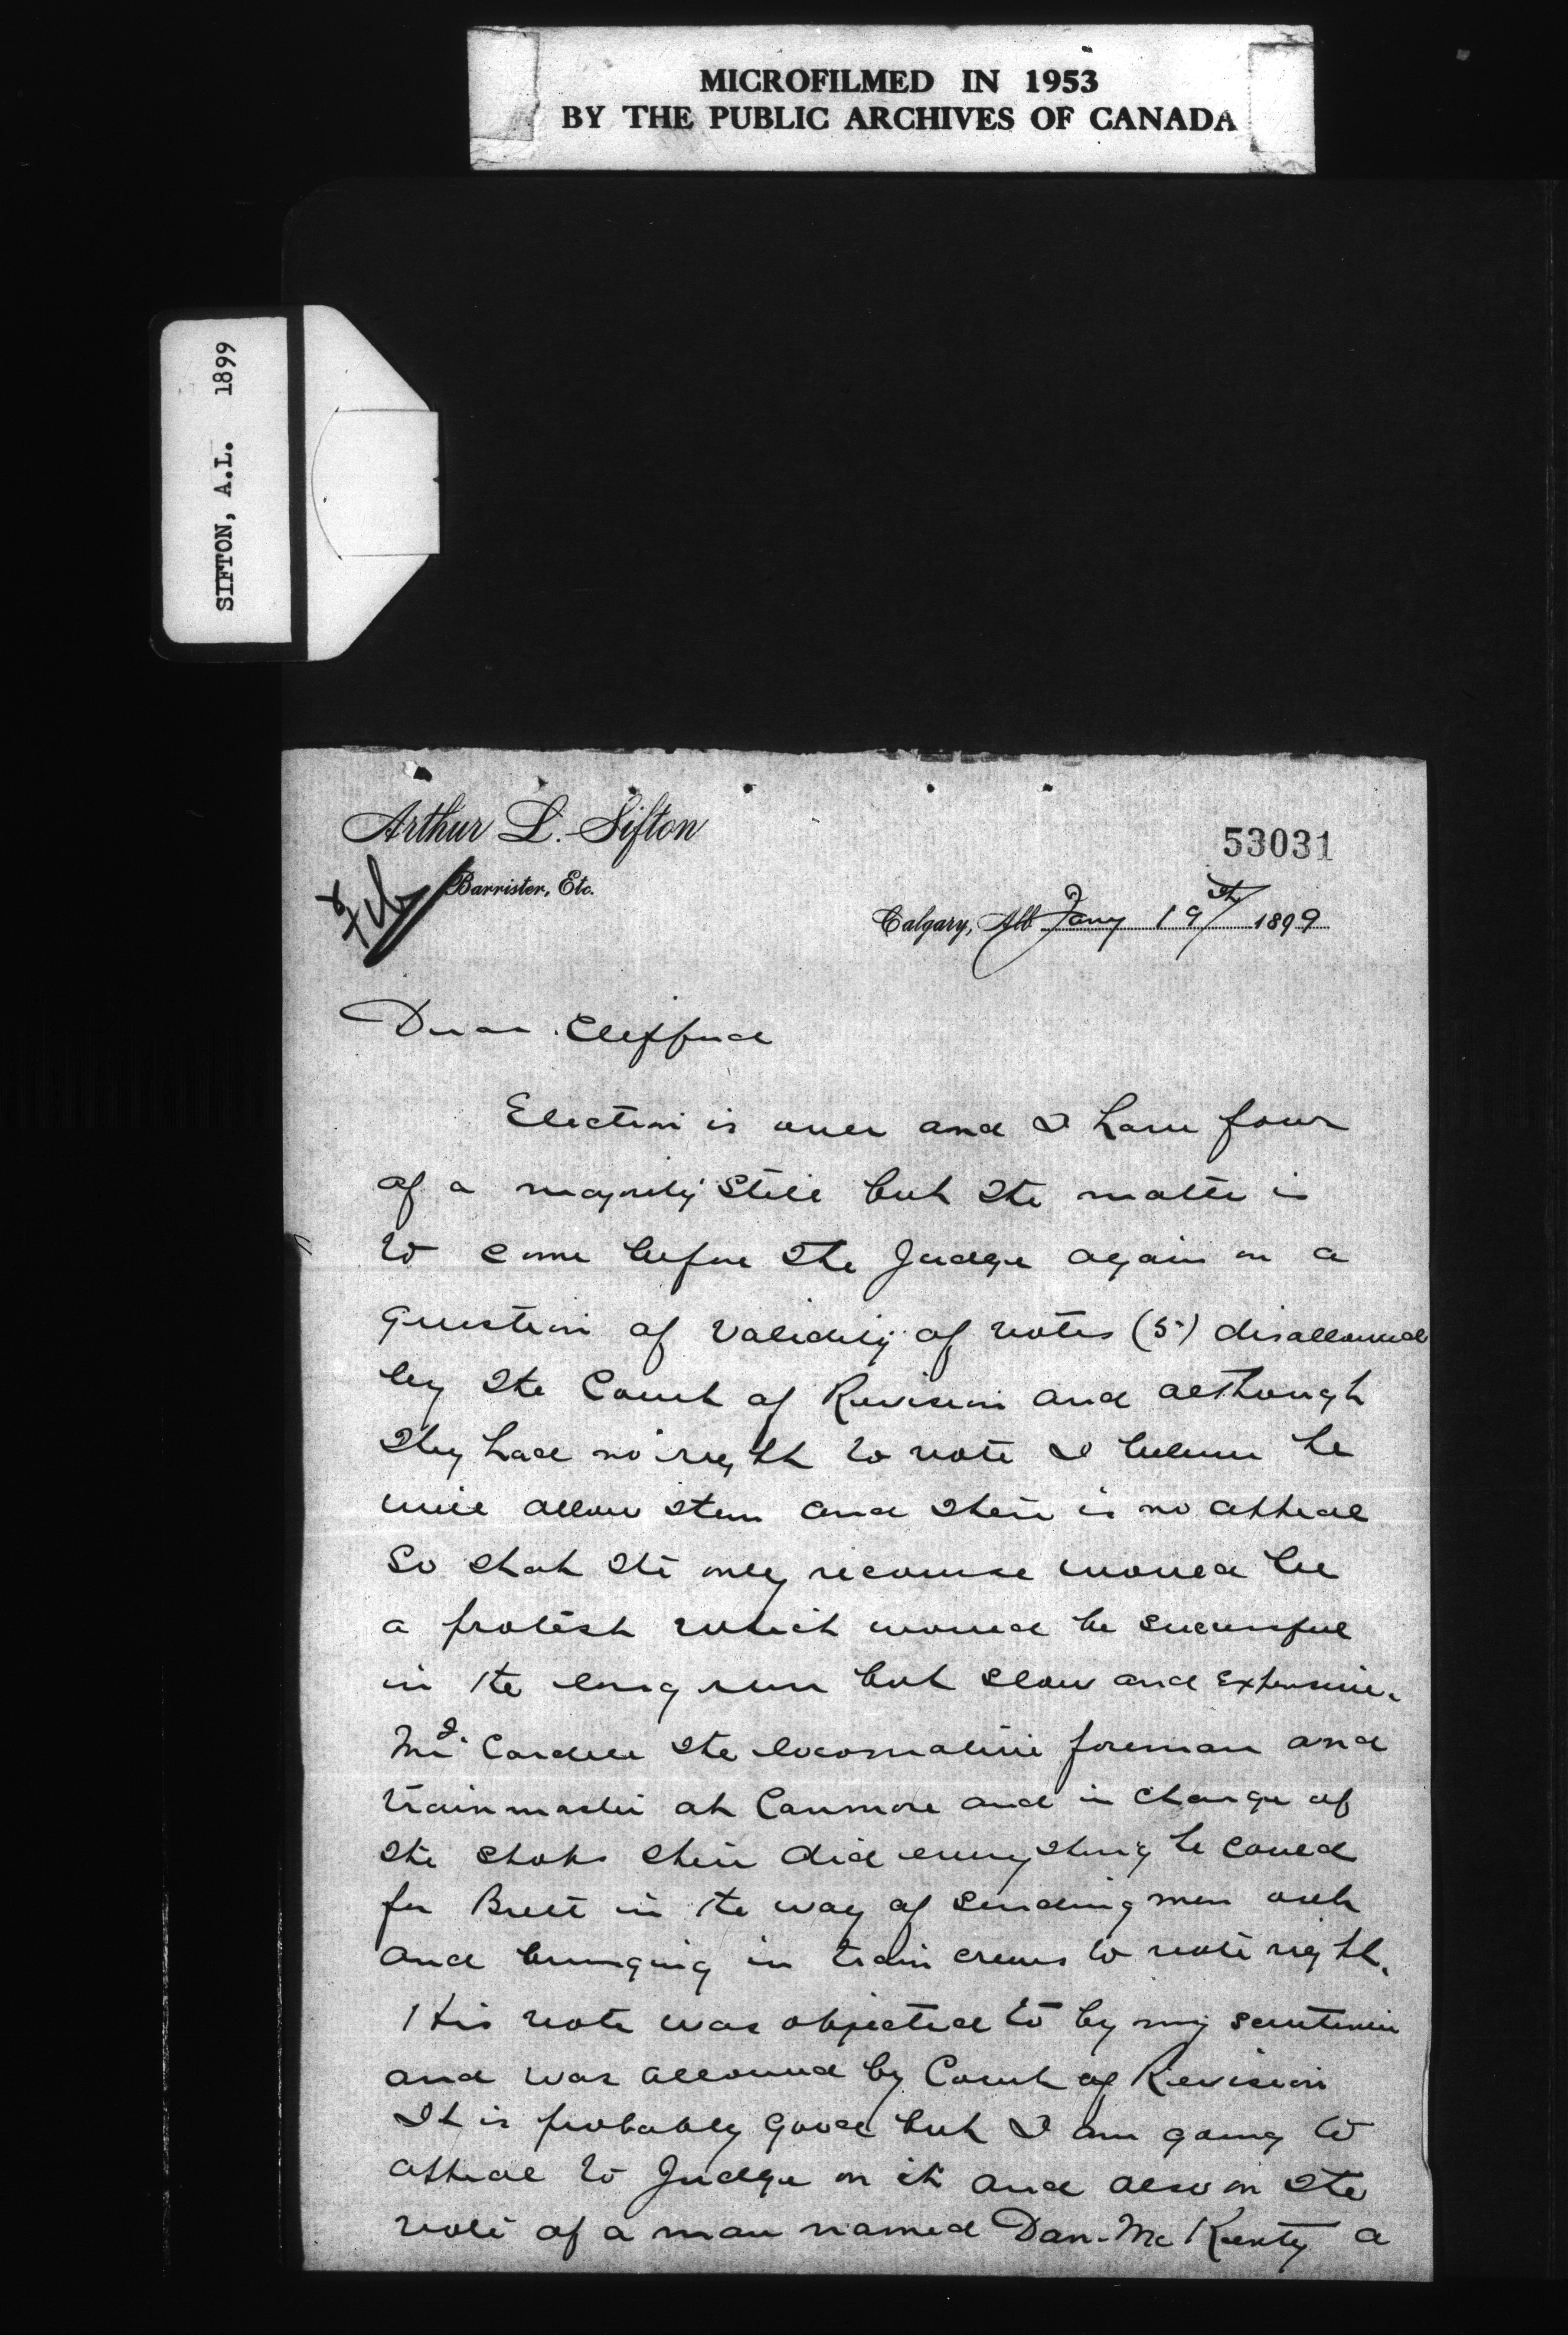 MICROFILMED IN 1953
BY THE PUBLIC ARCHIVES OF CANADA
SIFTON, A.L. 1899
Arthur L. Sifton
53031
Barrister, Etc.
File
Calgary, Alb Jany 19th 1899
Dear Clifford
Election is over and I have four
of a majority still but the matter is
to come before the Judge again on a
question of validity of votes (5) disallowed
by the Court of Revision and although
they had no right to vote I believe he
will allow them and there is no appeal
so that the only recourse would be
a protest which would be successful
in the long run but slow and expensive.
Cardell the locomotive foreman and
trainmaster at Canmore and in charge of
the shops there did everything he could
for Brett in the way of sending men out
and bringing in train crews to vote right.
His vote was objected to by my scrutineer
and was allowed by Court of Revision
It is probably good but I am going to
appeal to Judge on it and also on the
vote of a man named Dan. Mc Kenty a